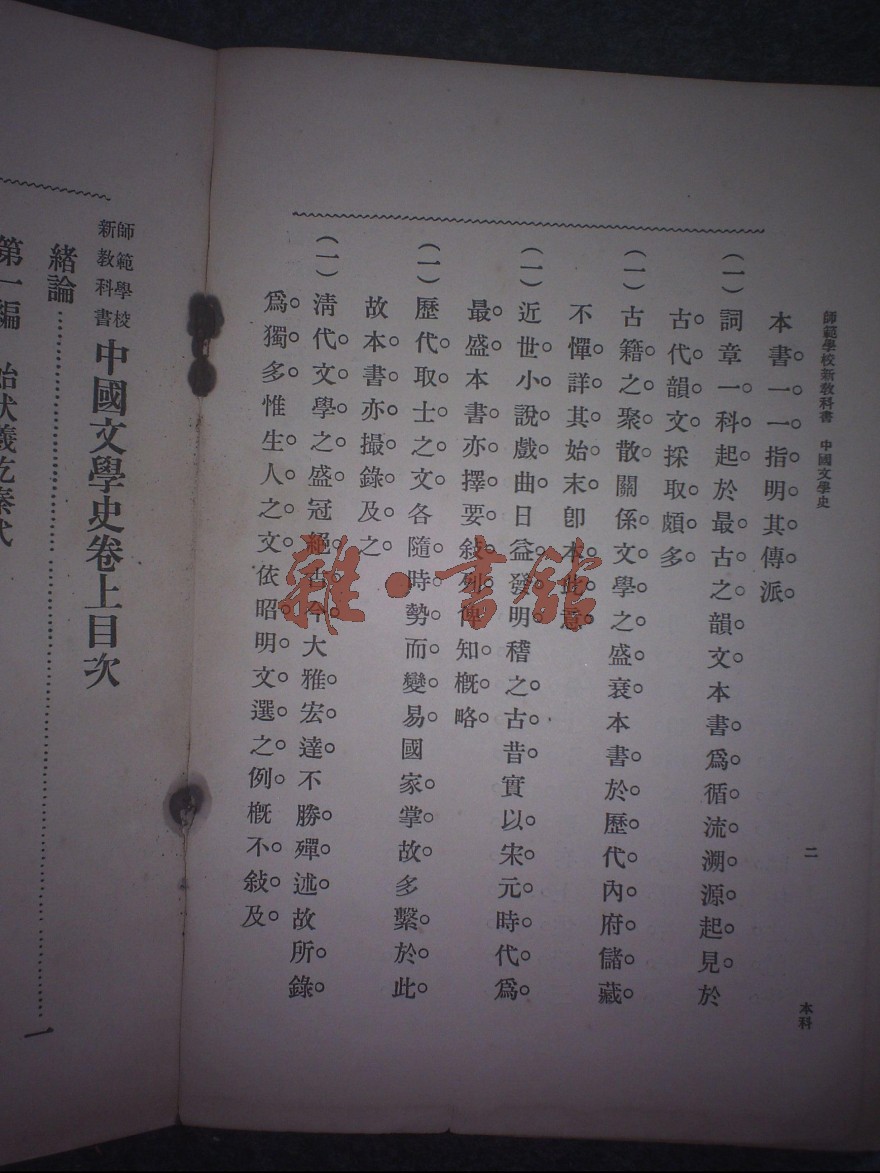 師範學校新教科書 中國文學史
二
本科
本書一一指明其傳派
(一)詞章一科起於最古之韻文本書爲循流溯源起見於
古代韻文採取頗多
(一)古籍之聚散關係文學之盛衰本書於歷代內府儲藏
不憚詳其始末卽本此意
(一)近世小說戲曲日益發明稽之古昔實以宋元時代爲
最盛本書亦擇要敍列俾知槪略
(一)歷代取士之文各隨時勢而變易國家掌故多繫於此
故本書亦撮錄及之
(一)淸代文學之盛冠絕古今大雅宏達不勝殫述故所錄
爲獨多惟生人之文依昭明文選之例槪不敍及
師範學校
新教科書
中國文學史卷上目次
緒論……………………一
第一編 始伏羲訖秦代
雜·書館